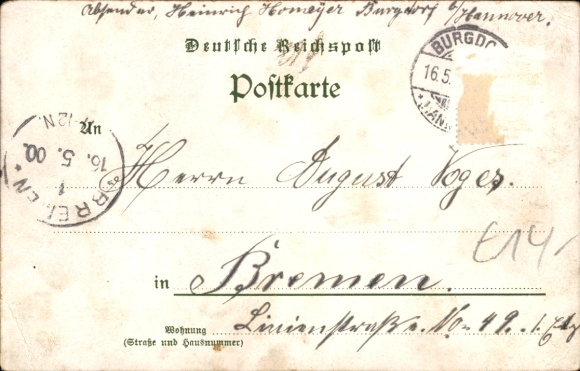 Absender, Heinrich Homeyer Burgdorf b/Hannover.
Deutsche Reichspost
Postkarte
BURGDO
16.5.
HANN
An
12N.
16. 5. 00
1
BREMEN
Herrn August Voges.
£14
in Bremen.
Wohnung
(Straße und Hausnummer)
Linienstraße No 49. 1. Etg